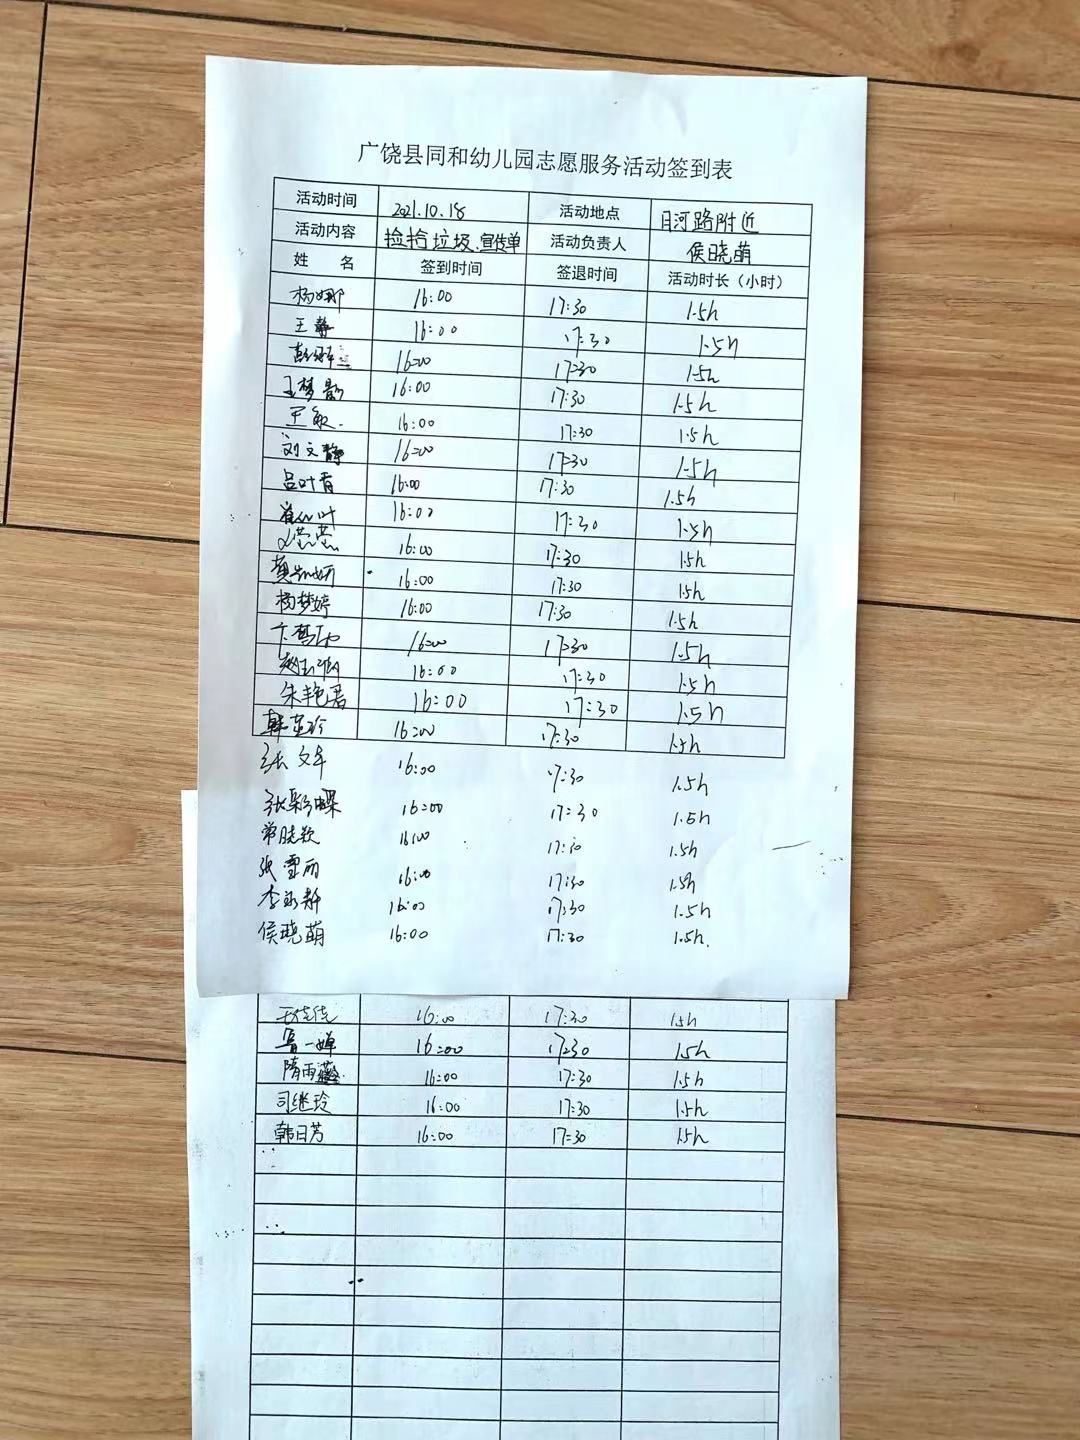 广饶县同和幼儿园志愿服务活动签到表
活动时间 2021.10.18 活动地点 月河路附近
活动内容 捡拾垃圾、宣传单 活动负责人 侯晓萌
姓 名 签到时间 签退时间 活动时长（小时）
杨娜 16:00 17:30 1.5h
王静 16:00 17:30 1.5h
16:00 17:30 1.5h
王梦 16:00 17:30 1.5h
王敏 16:00 17:30 1.5h
刘文静 16:00 17:30 1.5h
吕叶青 16:00 17:30 1.5h
16:00 17:30 1.5h
16:00 17:30 1.5h
黄 16:00 17:30 1.5h
杨梦婷 16:00 17:30 1.5h
16:00 17:30 1.5h
赵 16:00 17:30 1.5h
朱艳 16:00 17:30 1.5h
韩 16:00 17:30 1.5h
张文 16:00 17:30 1.5h
张彩蝶 16:00 17:30 1.5h
常晓 16:00 17:30 1.5h
张雪丽 16:00 17:30 1.5h
李 静 16:00 17:30 1.5h
侯晓萌 16:00 17:30 1.5h.
王佳佳 16:00 17:30 1.5h
一婵 16:00 17:30 1.5h
隋雨 16:00 17:30 1.5h
司继玲 16:00 17:30 1.5h
韩日芳 16:00 17:30 1.5h